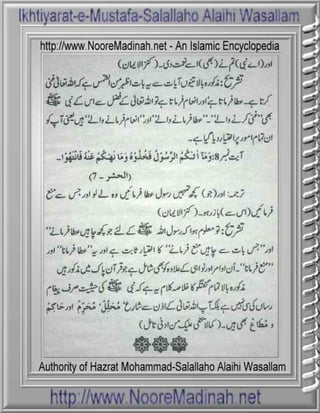 Ikhtiyarat-e-Mustafa-Salallaho Alaihi Wasallam
http://www.NooreMadinah.net - An Islamic Encyclopedia
اور (اے نبی) تم نے (بھی) اسے نعمت دی۔ (کنز الایمان)
تشریح: مذکورہ بالا تینوں آیات سے یہ بات اظہر من الشمس ہے کہ اللہ تعالیٰ غنی
کرتا ہے۔ عطا فرماتا ہے اور انعام فرماتا ہے تو اللہ تعالیٰ کے فضل سے اس کے نبی ﷺ
بھی ”غنی کرنے والے“۔ ”عطا فرمانے والے“ اور ”انعام فرمانے والے“ ہیں یعنی آپ کو
ان تمام امور پر اختیار دیا گیا ہے۔
آیت نمبر 8: وَمَآ اٰتٰكُمُ الرَّسُوْلُ فَخُذُوْهُ وَمَا نَهٰكُمْ عَنْهُ فَانْتَهُوْا۔
(الحشر - 7)
ترجمہ: اور (جو) کچھ تمہیں رسول عطا فرمائیں وہ لے لو اور جس سے منع
فرمائیں (اس سے) باز رہو۔ (کنز الایمان)
تشریح: تو معلوم ہوا کہ رسول اللہ ﷺ کے لئے جو کچھ چاہیں ”عطا فرمانے“
اور ”جس بات سے چاہیں منع فرمانے“ کا اختیار ثابت ہے اور یہ ”عطا فرمانا“ اور
”منع فرمانا“۔ اُن اوامر اور نواہی کے علاوہ کو بھی شامل ہے جو قرآن پاک میں مذکور ہیں
مذکورہ بالا تمام گفتگو کا خلاصہ کلام یہ ہے کہ نبی ﷺ کی حیثیت صرف پیغام
رساں کی سی نہیں ہے بلکہ آپ اللہ تعالیٰ کے اذن سے شارع مُحَلِّل، مُحَرِّم اور حاکم
و مطاع بھی ہیں۔ (کمالا یخفی علیک من ادنی تامل)
Authority of Hazrat Mohammad-Salallaho Alaihi Wasallam
http://www.NooreMadinah.net